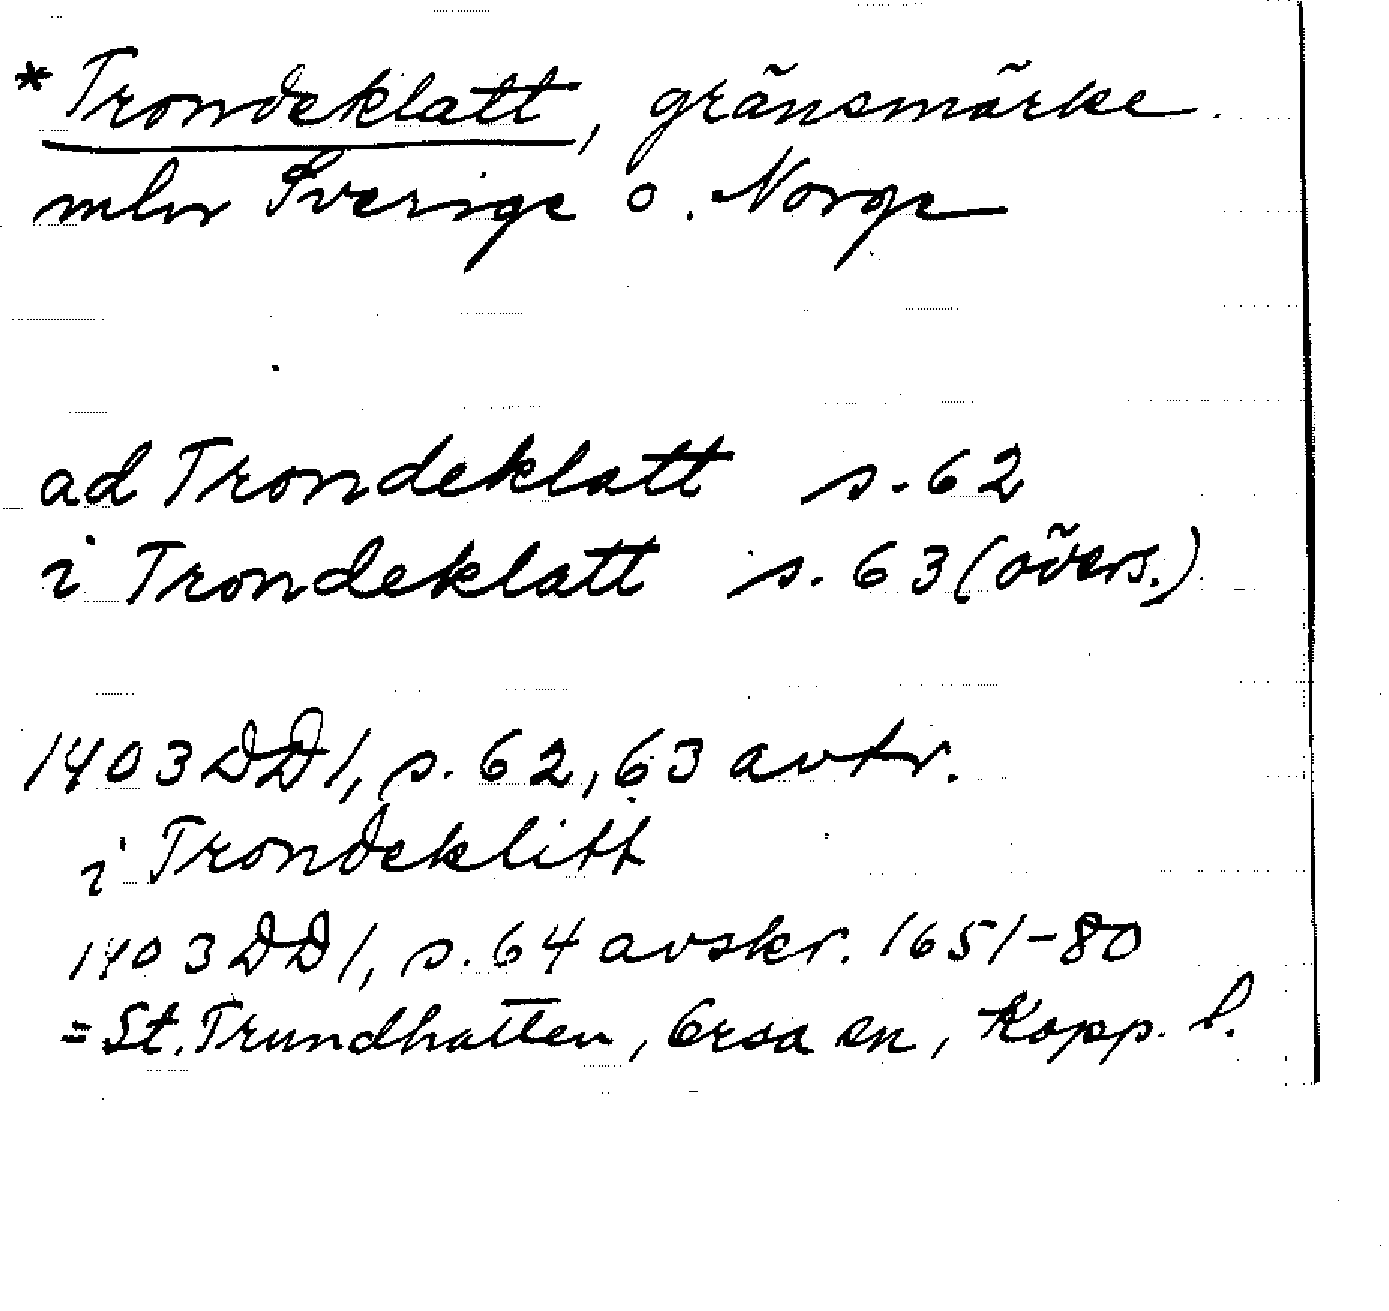 *Trondeklatt, gränsmärke
mlnr Sverige o. Norge
ad Trondeklatt s. 62
i Trondeklatt s. 63 (övers.)
1403 DD 1, s. 62, 63 avtr.
i Trondeklitt
1403 DD 1, s. 64 avskr. 1651-80
= St. Trundhatten, Orsa sn, Kopp. l.